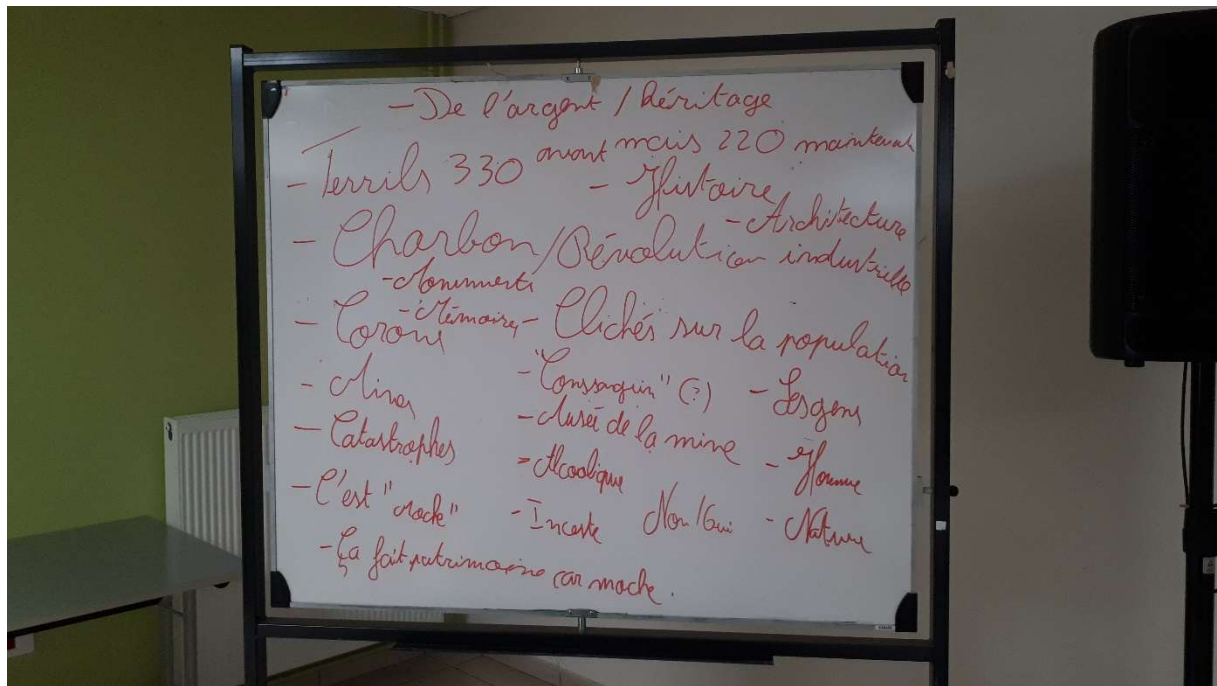 - De l'argent / héritage
- Terrils 330 avant mais 220 maintenant
- Histoire
- Architecture
- Charbon/Révolution industrielle
- Monuments
- Mémoire
- Corons
- Clichés sur la population
- Mines
- "Conssaguin" (?)
- Les gens
- Catastrophes
- Musée de la mine
- Homme
- Alcoolique
- C'est "moche"
- Inceste Non/Oui
- Nature
- Ça fait patrimoine car moche.